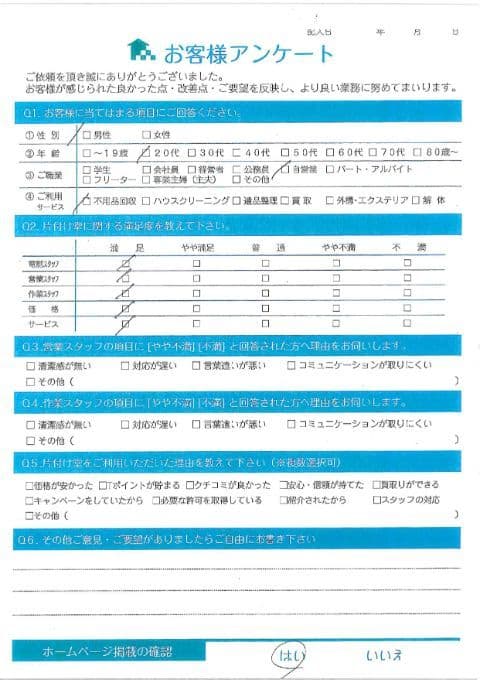 記入日 年 月 日
お客様アンケート
ご依頼を頂き誠にありがとうございました。
お客様が感じられた良かった点・改善点・ご要望を反映し、より良い業務に努めてまいります。
Q1. お客様に当てはまる項目にご回答ください。
①性別 □男性 □女性
②年齢 □～19歳 □20代 □30代 □40代 □50代 □60代 □70代 □80歳～
③ご職業 □学生 □会社員 □経営者 □公務員 □自営業 □パート・アルバイト
□フリーター □専業主婦（主夫） □その他
④ご利用サービス □不用品回収 □ハウスクリーニング □遺品整理 □買取 □外構・エクステリア □解体
Q2. 片付け堂に関する満足度を教えて下さい。
満足 やや満足 普通 やや不満 不満
電話スタッフ □ □ □ □ □
営業スタッフ □ □ □ □ □
作業スタッフ □ □ □ □ □
価格 □ □ □ □ □
サービス □ □ □ □ □
Q3.営業スタッフの項目に[やや不満][不満]と回答された方へ理由をお伺いします。
□清潔感が無い □対応が遅い □言葉遣いが悪い □コミュニケーションが取りにくい
□その他（ ）
Q4.作業スタッフの項目に[やや不満][不満]と回答された方へ理由をお伺いします。
□清潔感が無い □対応が遅い □言葉遣いが悪い □コミュニケーションが取りにくい
□その他（ ）
Q5.片付け堂をご利用いただいた理由を教えて下さい（※複数選択可）
□価格が安かった □Tポイントが貯まる □クチコミが良かった □安心・信頼が持てた □買取りができる
□キャンペーンをしていたから □必要な許可を取得している □紹介されたから □スタッフの対応
□その他（ ）
Q6. その他ご意見・ご要望がありましたらご自由にお書き下さい
ホームページ掲載の確認 はい いいえ